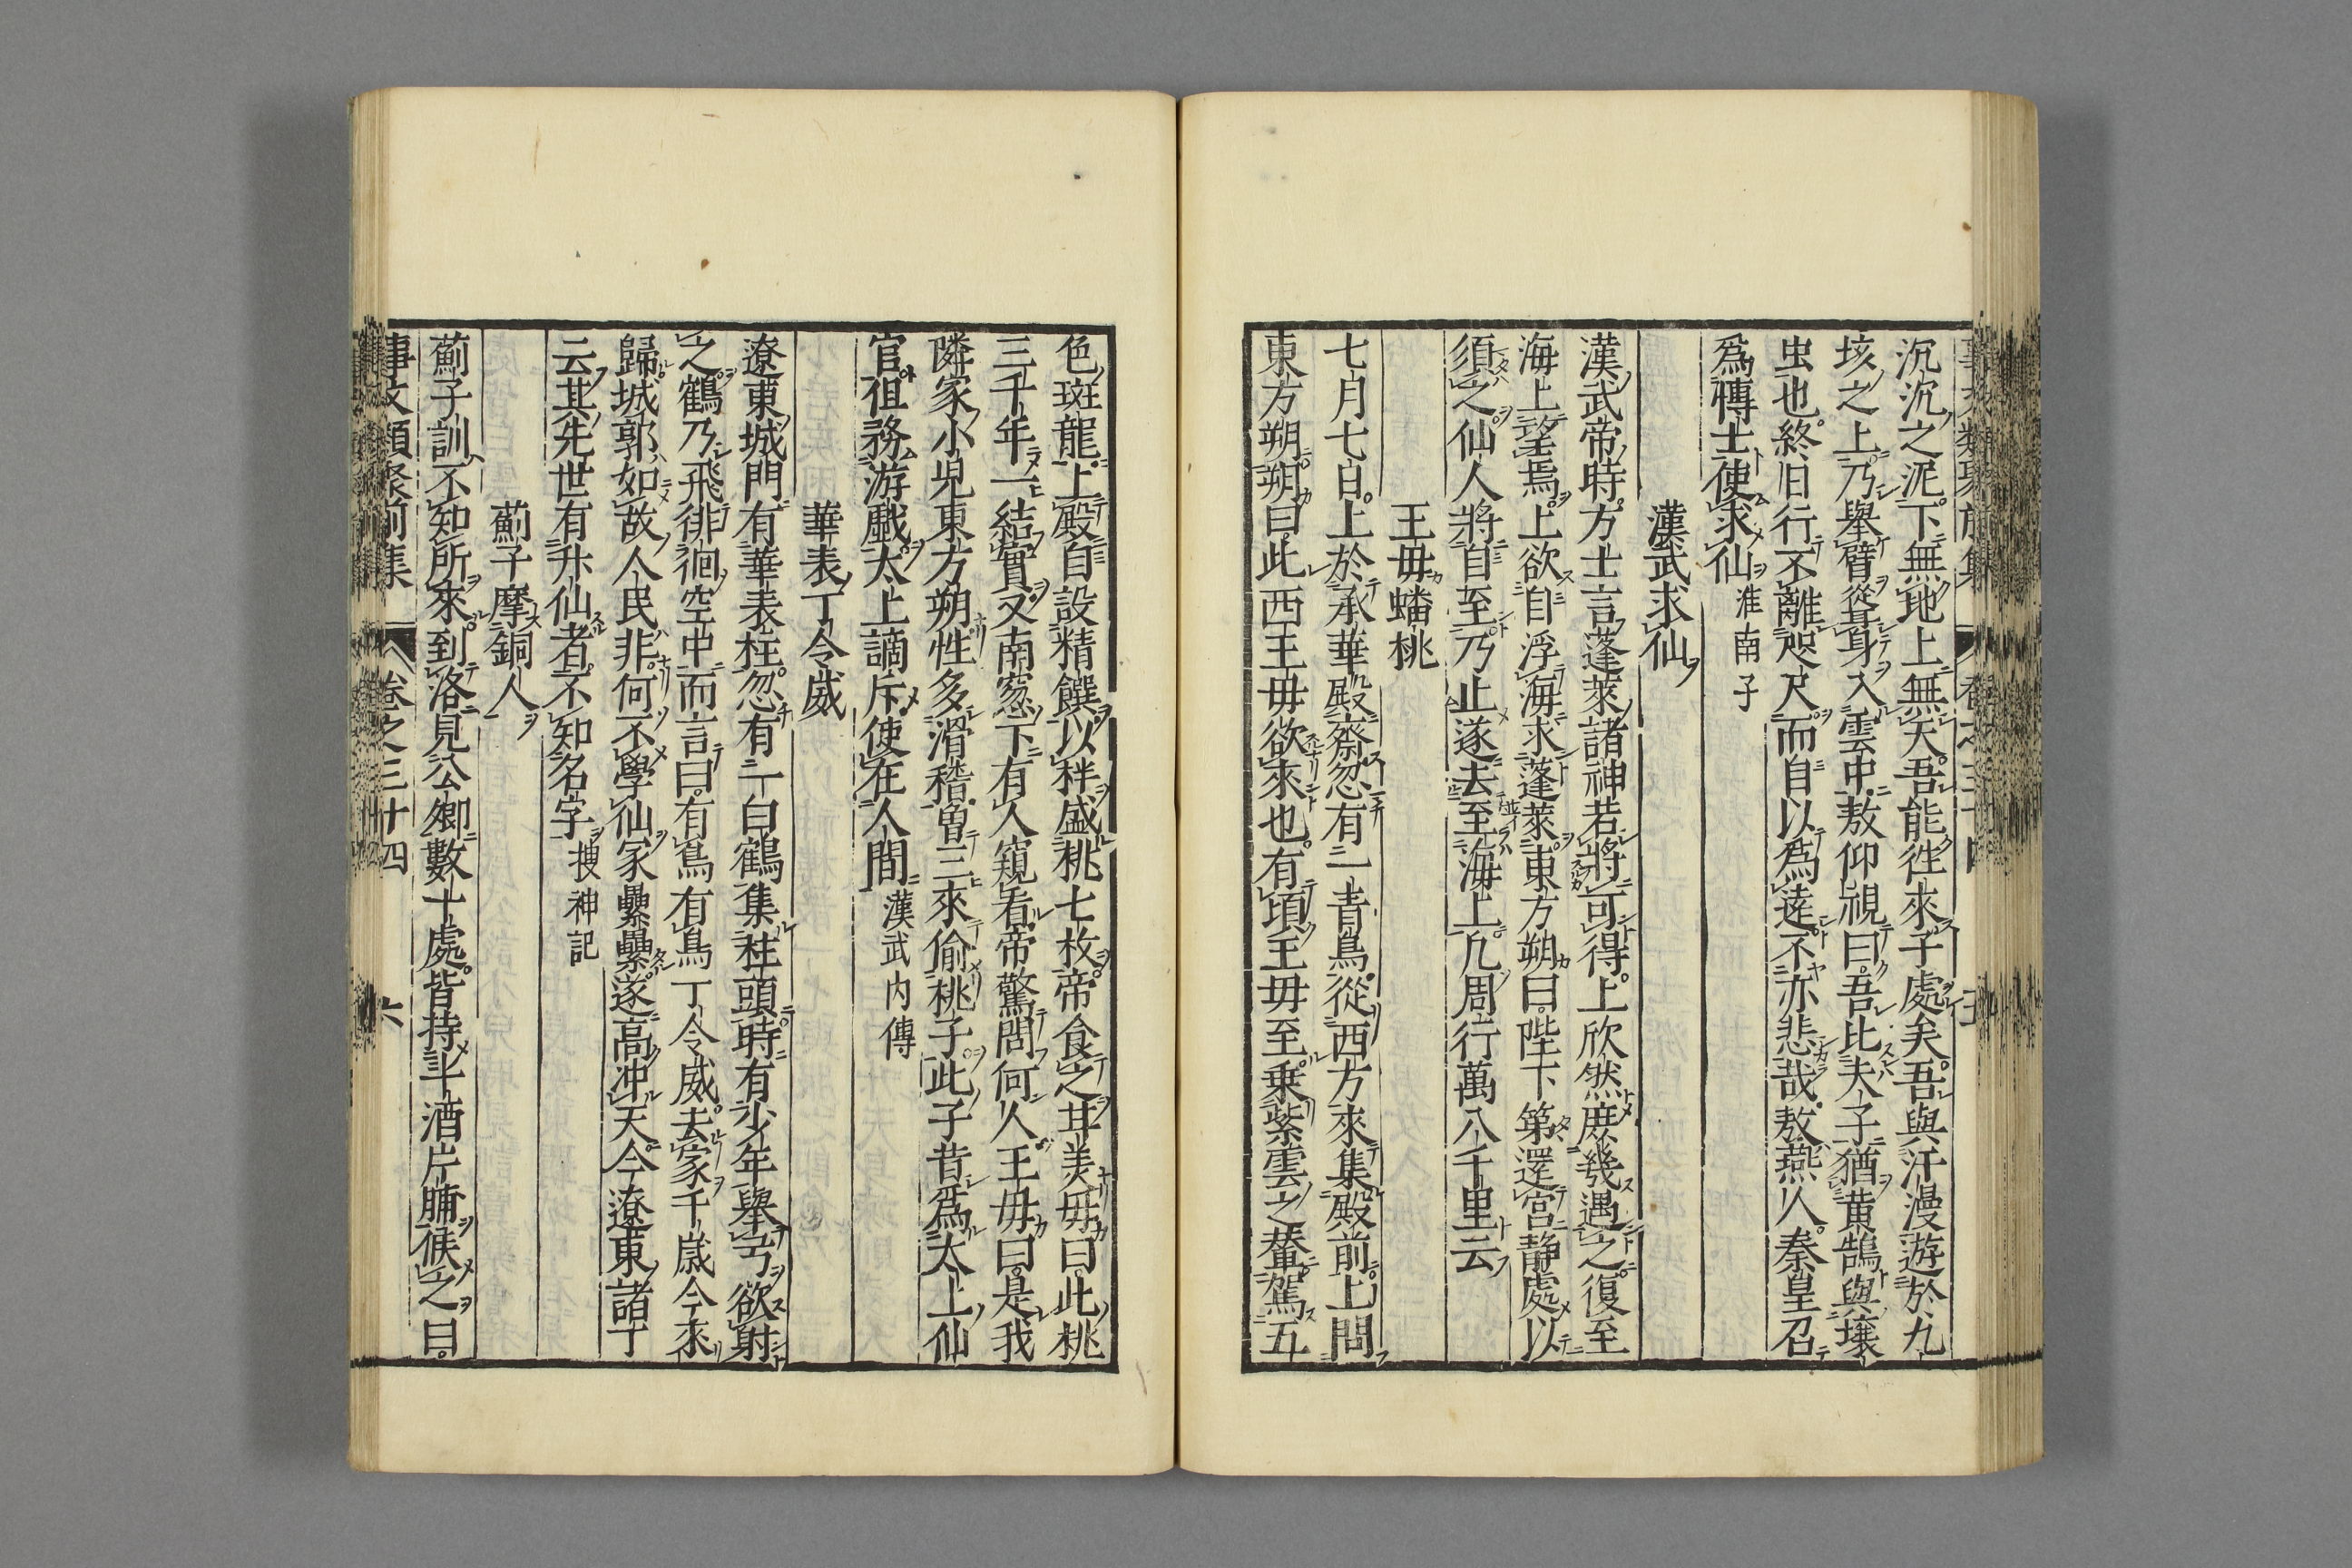 沉沉之泥下無地上無天吾能徃來子處矣吾與汗漫遊於九
垓之上乃舉臂從身入雲中敖仰視曰吾比夫子猶黄鵠與壤
虫也終日行不離咫尺而自以爲逹不亦悲哉敖燕人秦皇召
爲博士使求仙淮南子
漢武求仙
漢武帝時方士言蓬萊諸神若將可得上欣然庶幾遇之復至
海上望焉上欲自浮海求蓬萊東方朔曰陛下第還宫静處以
須之仙人將自至乃止遂去至海上凢周行萬八千里云
王毋蟠桃
七月七日上於承華殿齋忽有一青鳥從西方來集殿前上問
東方朔朔曰此西王毋欲來也有頃王毋至乗紫雲之輦駕五
色斑龍上殿自設精饌以柈盛桃七枚帝食之甘美毋曰此桃
三千年一結實又南窓下有人窺看帝驚問何人王毋曰是我
隣家小兒東方朔性多滑稽曽三來偷桃子此子昔爲太上仙
官但務游戲太上謫斥使在人間漢武内傳
華表丁令威
遼東城門有華表柱忽有一白鶴集柱頭時有少年舉弓欲射
之鶴乃飛徘徊空中而言曰有鳥有鳥丁令威去家千歳今來
歸城郭如故人民非何不學仙冢纍纍遂高冲天今遼東諸丁
云其先世有升仙者不知名字搜神記
薊子摩銅人
薊子訓不知所來到洛見公卿數十處皆持斗酒片脯候之曰
事文類聚前集 卷之三十四 六